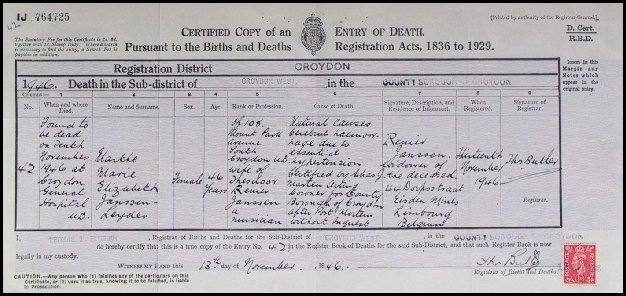 IJ 764725
CERTIFIED COPY of an ENTRY OF DEATH.
Pursuant to the Births and Deaths Registration Acts, 1836 to 1929.
[Printed by authority of the Registrar-General.]
D. Cert.
R.B.D.
The Statutory Fee for this Certificate is 2s. 6d.
Registration District CROYDON
1946. Death in the Sub-district of CROYDON WEST in the COUNTY BOROUGH OF CROYDON
Insert in this Margin any Notes which appear in the original entry.
Columns:— 1 2 3 4 5 6 7 8 9
No. When and where Died. Name and Surname. Sex. Age Rank or Profession. Cause of Death Signature, Description, and Residence of Informant. When Registered. Signature of Registrar.
42
Found to be dead on Tenth November 1946 at Croydon General Hospital U.D.
Marie Elizabeth Janssen-Leyder
Female
46 Years
of 108 Mount Park Avenue South Croydon U.D. wife of Theodoor Renier Janssen a musician
Natural Causes Cerebral haemorrhage due to essential hypertension Certified by Chas. Acting Coroner for County Borough of Croydon after Post Mortem without Inquest
Renier Janssen widower of the deceased 44 Eisden Mines Limbourg Belgium
Thirteenth November 1946
Thos Butler
Registrar.
I, Registrar of Births and Deaths for the Sub-District of CROYDON WEST, in the COUNTY BOROUGH
do hereby certify that this is a true copy of the Entry No. 42 in the Register Book of Deaths for the said Sub-District, and that such Register Book is now
legally in my custody.
WITNESS MY HAND this 13th day of November, 1946.
CAUTION.—Any person who (1) falsifies any of the particulars on this Certificate, or (2) uses it as true, knowing it to be falsified, is liable to Prosecution.
Registrar of Births and Deaths.